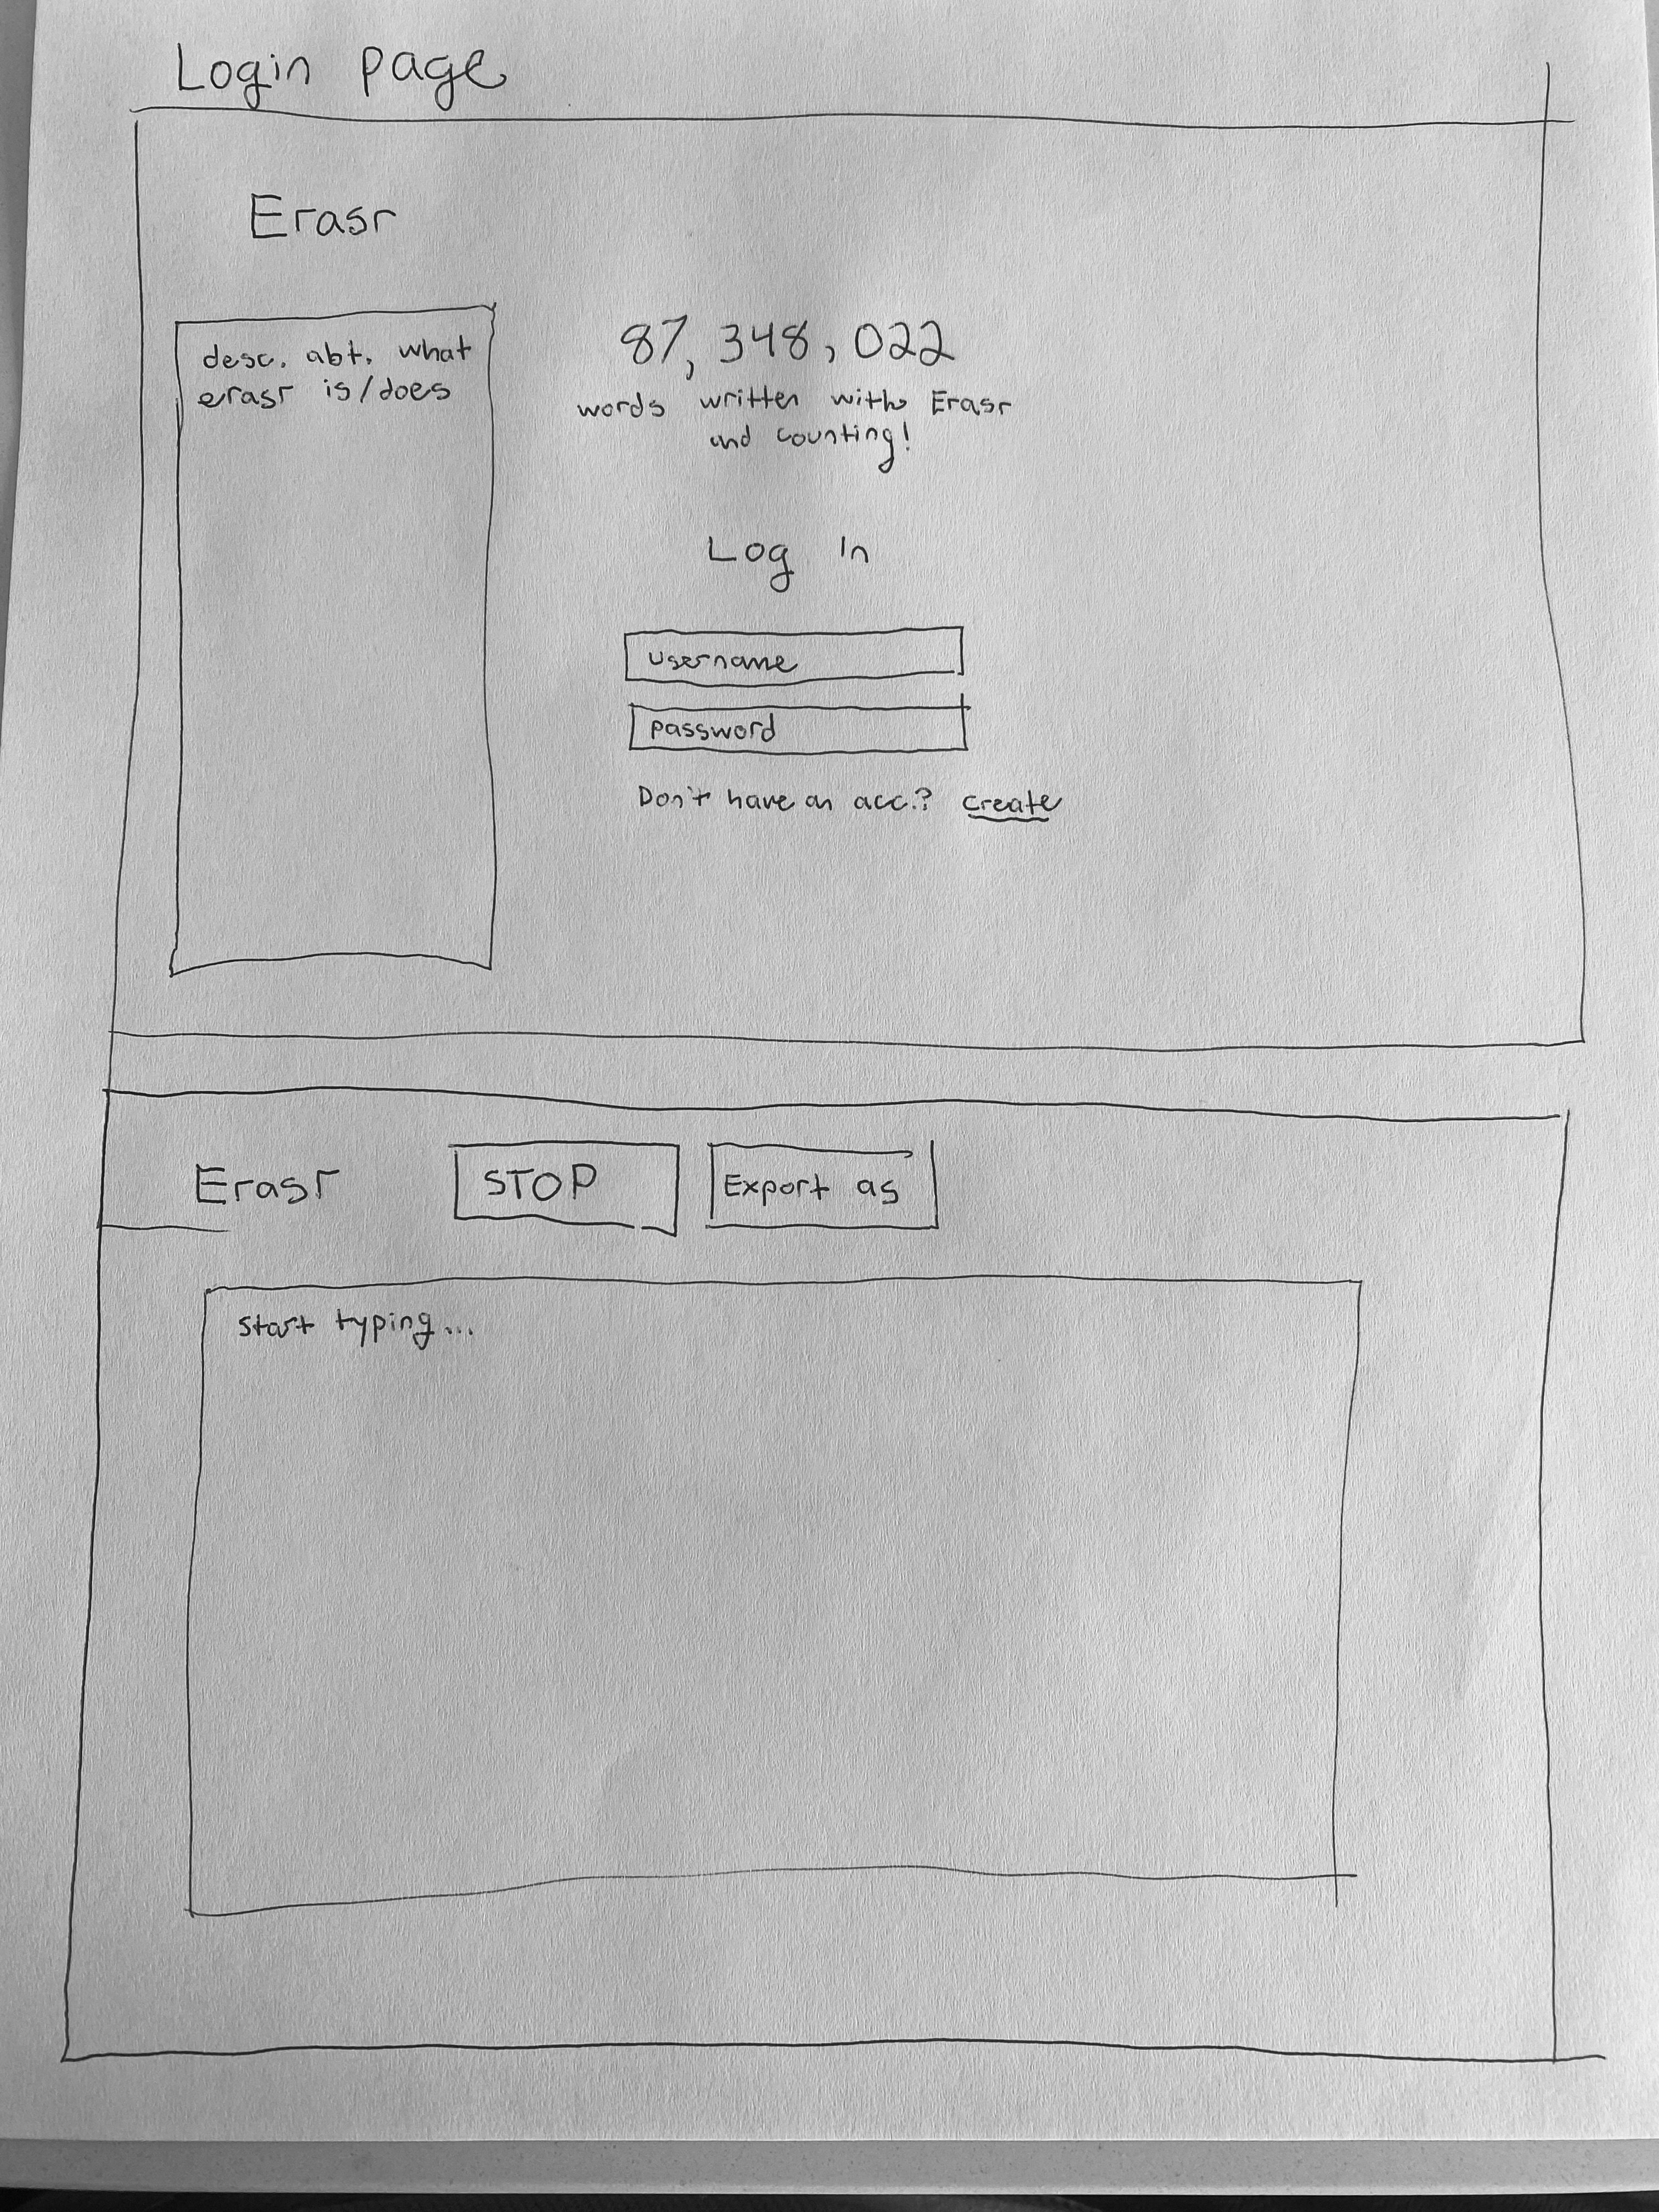 Login page
Erasr
desc. abt. what
erasr is/does
87,348,022
words written with Erasr
and counting!
Log in
username
password
Don't have an acc.? create
Erasr
STOP
Export as
start typing...